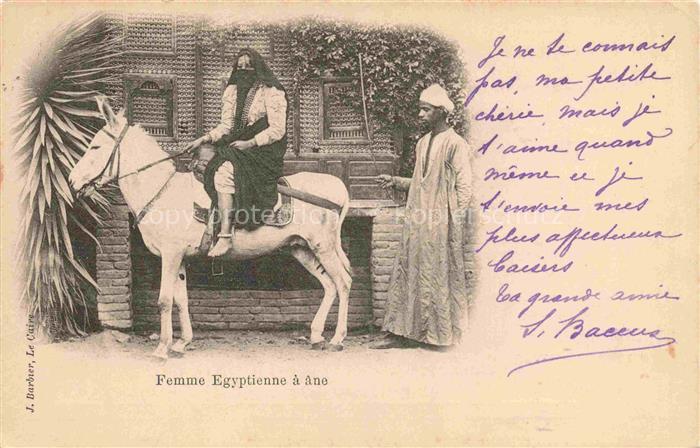 Je ne te connais
pas, ma petite
chérie, mais je
t'aime quand
même et je
t'envoie mes
plus affectueux
baisers
Ta grande amie
S. Baccus
Femme Egyptienne à âne
J. Barbier, Le Caire
copy protection Copyrightschutz